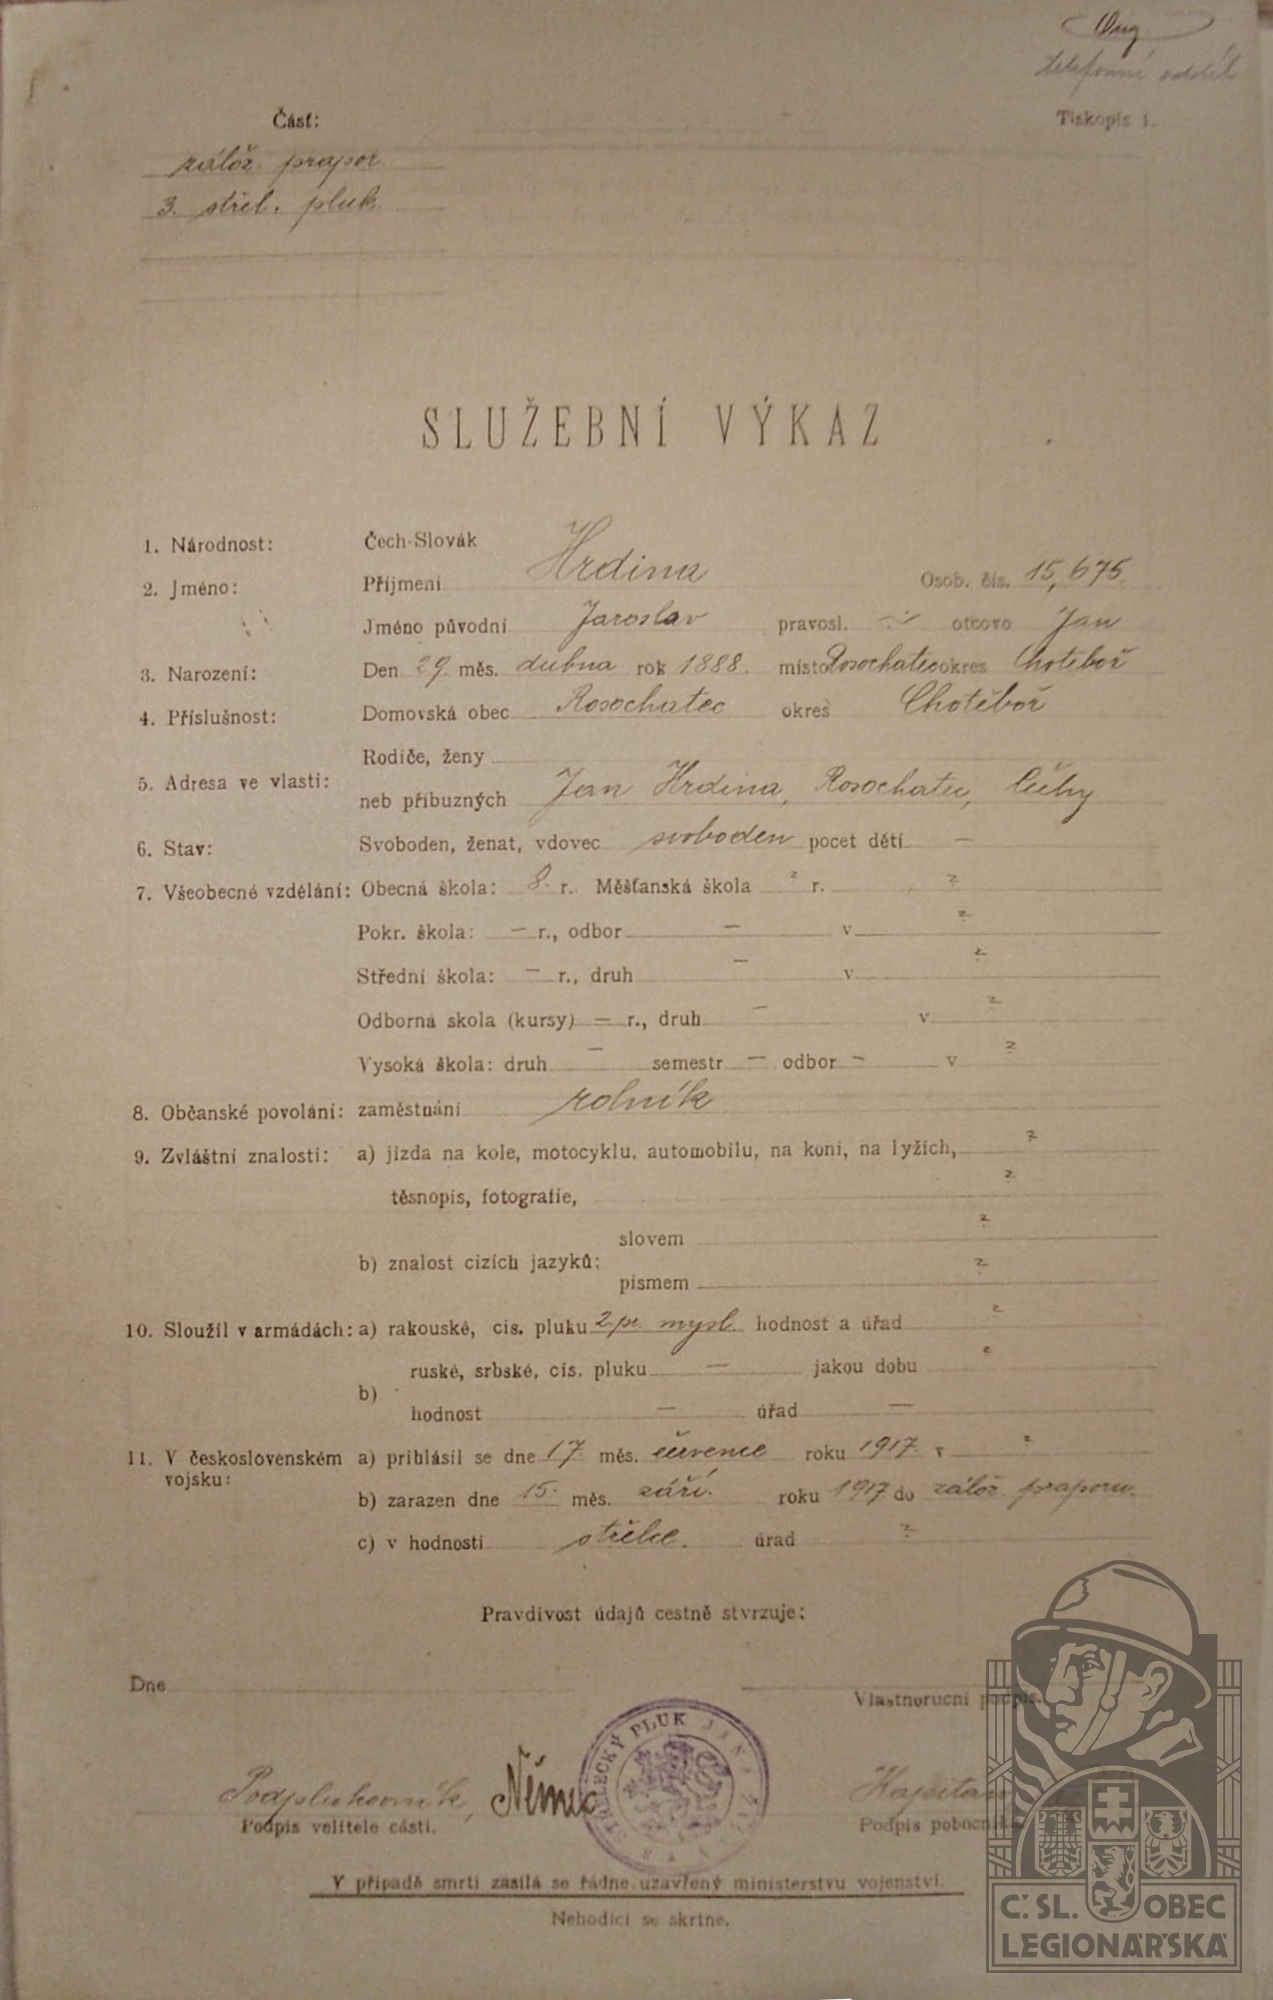 telefonní oddíl
Část: Tiskopis 1.
zálož. prapor.
3. střel. pluk.
SLUŽEBNÍ VÝKAZ
1. Národnost: Čech-Slovák
2. Jméno: Příjmení Hrdina Osob. čís. 15,675
Jméno původní Jaroslav pravosl. otcovo Jan
3. Narození: Den 29. měs. dubna rok 1888. místo Rosochatec okres Chotěboř
4. Příslušnost: Domovská obec Rosochatec okres Chotěboř
Rodiče, ženy
5. Adresa ve vlasti:
neb příbuzných Jan Hrdina, Rosochatec, Čechy
6. Stav: Svoboden, ženat, vdovec svoboden počet dětí —
7. Všeobecné vzdělání: Obecná škola: 8. r. Měšťanská škola r.
Pokr. škola: — r., odbor — v
Střední škola: — r., druh — v
Odborná škola (kursy) — r., druh — v
Vysoká škola: druh — semestr — odbor — v
8. Občanské povolání: zaměstnání rolník
9. Zvláštní znalosti: a) jízda na kole, motocyklu, automobilu, na koni, na lyžích,
těsnopis, fotografie,
slovem
b) znalost cizích jazyků:
písmem
10. Sloužil v armádách: a) rakouské, čís. pluku 2 pr. mysl. hodnost a úřad
ruské, srbské, čís. pluku — jakou dobu
b)
hodnost — úřad —
11. V československém vojsku: a) přihlásil se dne 17. měs. července roku 1917. v
b) zařazen dne 15. měs. září. roku 1917. do zálož. praporu.
c) v hodnosti střelec. úřad
Pravdivost údajů čestně stvrzuje:
Dne
Vlastnoruční podpis.
STŘELECKÝ PLUK JANA
Podplukovník, Němec Kapitán
Podpis velitele části. Podpis pobočníka.
V případě smrti zasílá se řádne uzavřený ministerstvu vojenství.
Nehodící se škrtne.
Č. SL. OBEC
LEGIONÁŘSKÁ